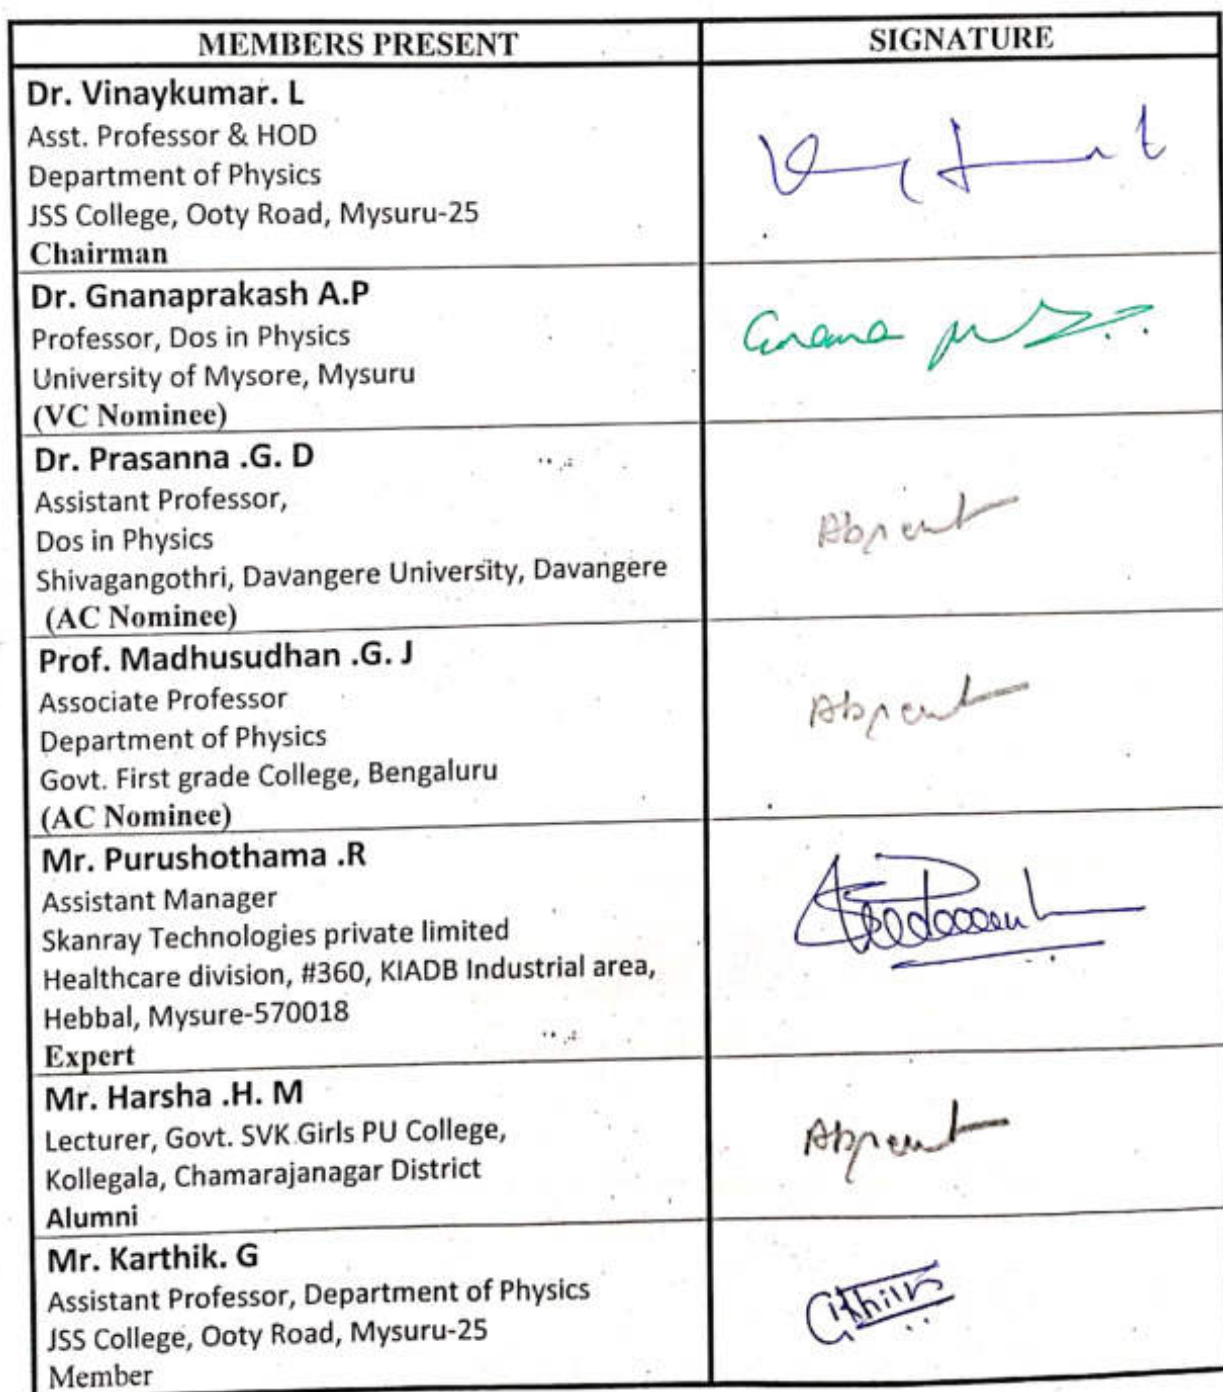 MEMBERS PRESENT
SIGNATURE
Dr. Vinaykumar. L
Asst. Professor & HOD
Department of Physics
JSS College, Ooty Road, Mysuru-25
Chairman
Dr. Gnanaprakash A.P
Professor, Dos in Physics
University of Mysore, Mysuru
(VC Nominee)
Dr. Prasanna .G. D
Assistant Professor,
Dos in Physics
Shivagangothri, Davangere University, Davangere
(AC Nominee)
Absent
Prof. Madhusudhan .G. J
Associate Professor
Department of Physics
Govt. First grade College, Bengaluru
(AC Nominee)
Absent
Mr. Purushothama .R
Assistant Manager
Skanray Technologies private limited
Healthcare division, #360, KIADB Industrial area,
Hebbal, Mysure-570018
Expert
Mr. Harsha .H. M
Lecturer, Govt. SVK Girls PU College,
Kollegala, Chamarajanagar District
Alumni
Absent
Mr. Karthik. G
Assistant Professor, Department of Physics
JSS College, Ooty Road, Mysuru-25
Member